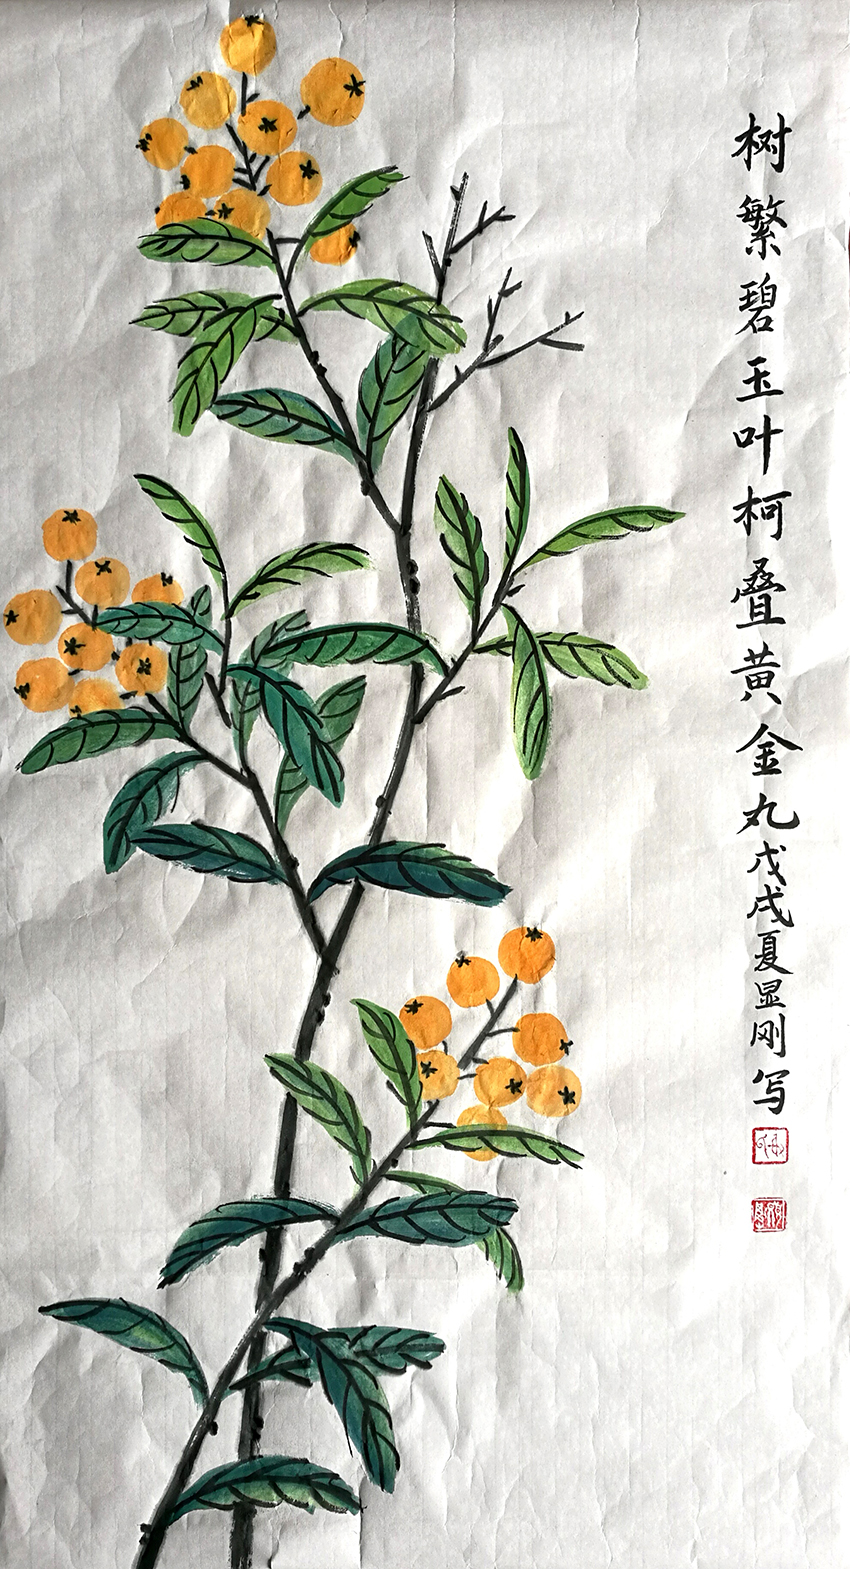 树繁碧玉叶柯叠黄金丸戊戌夏显刚写